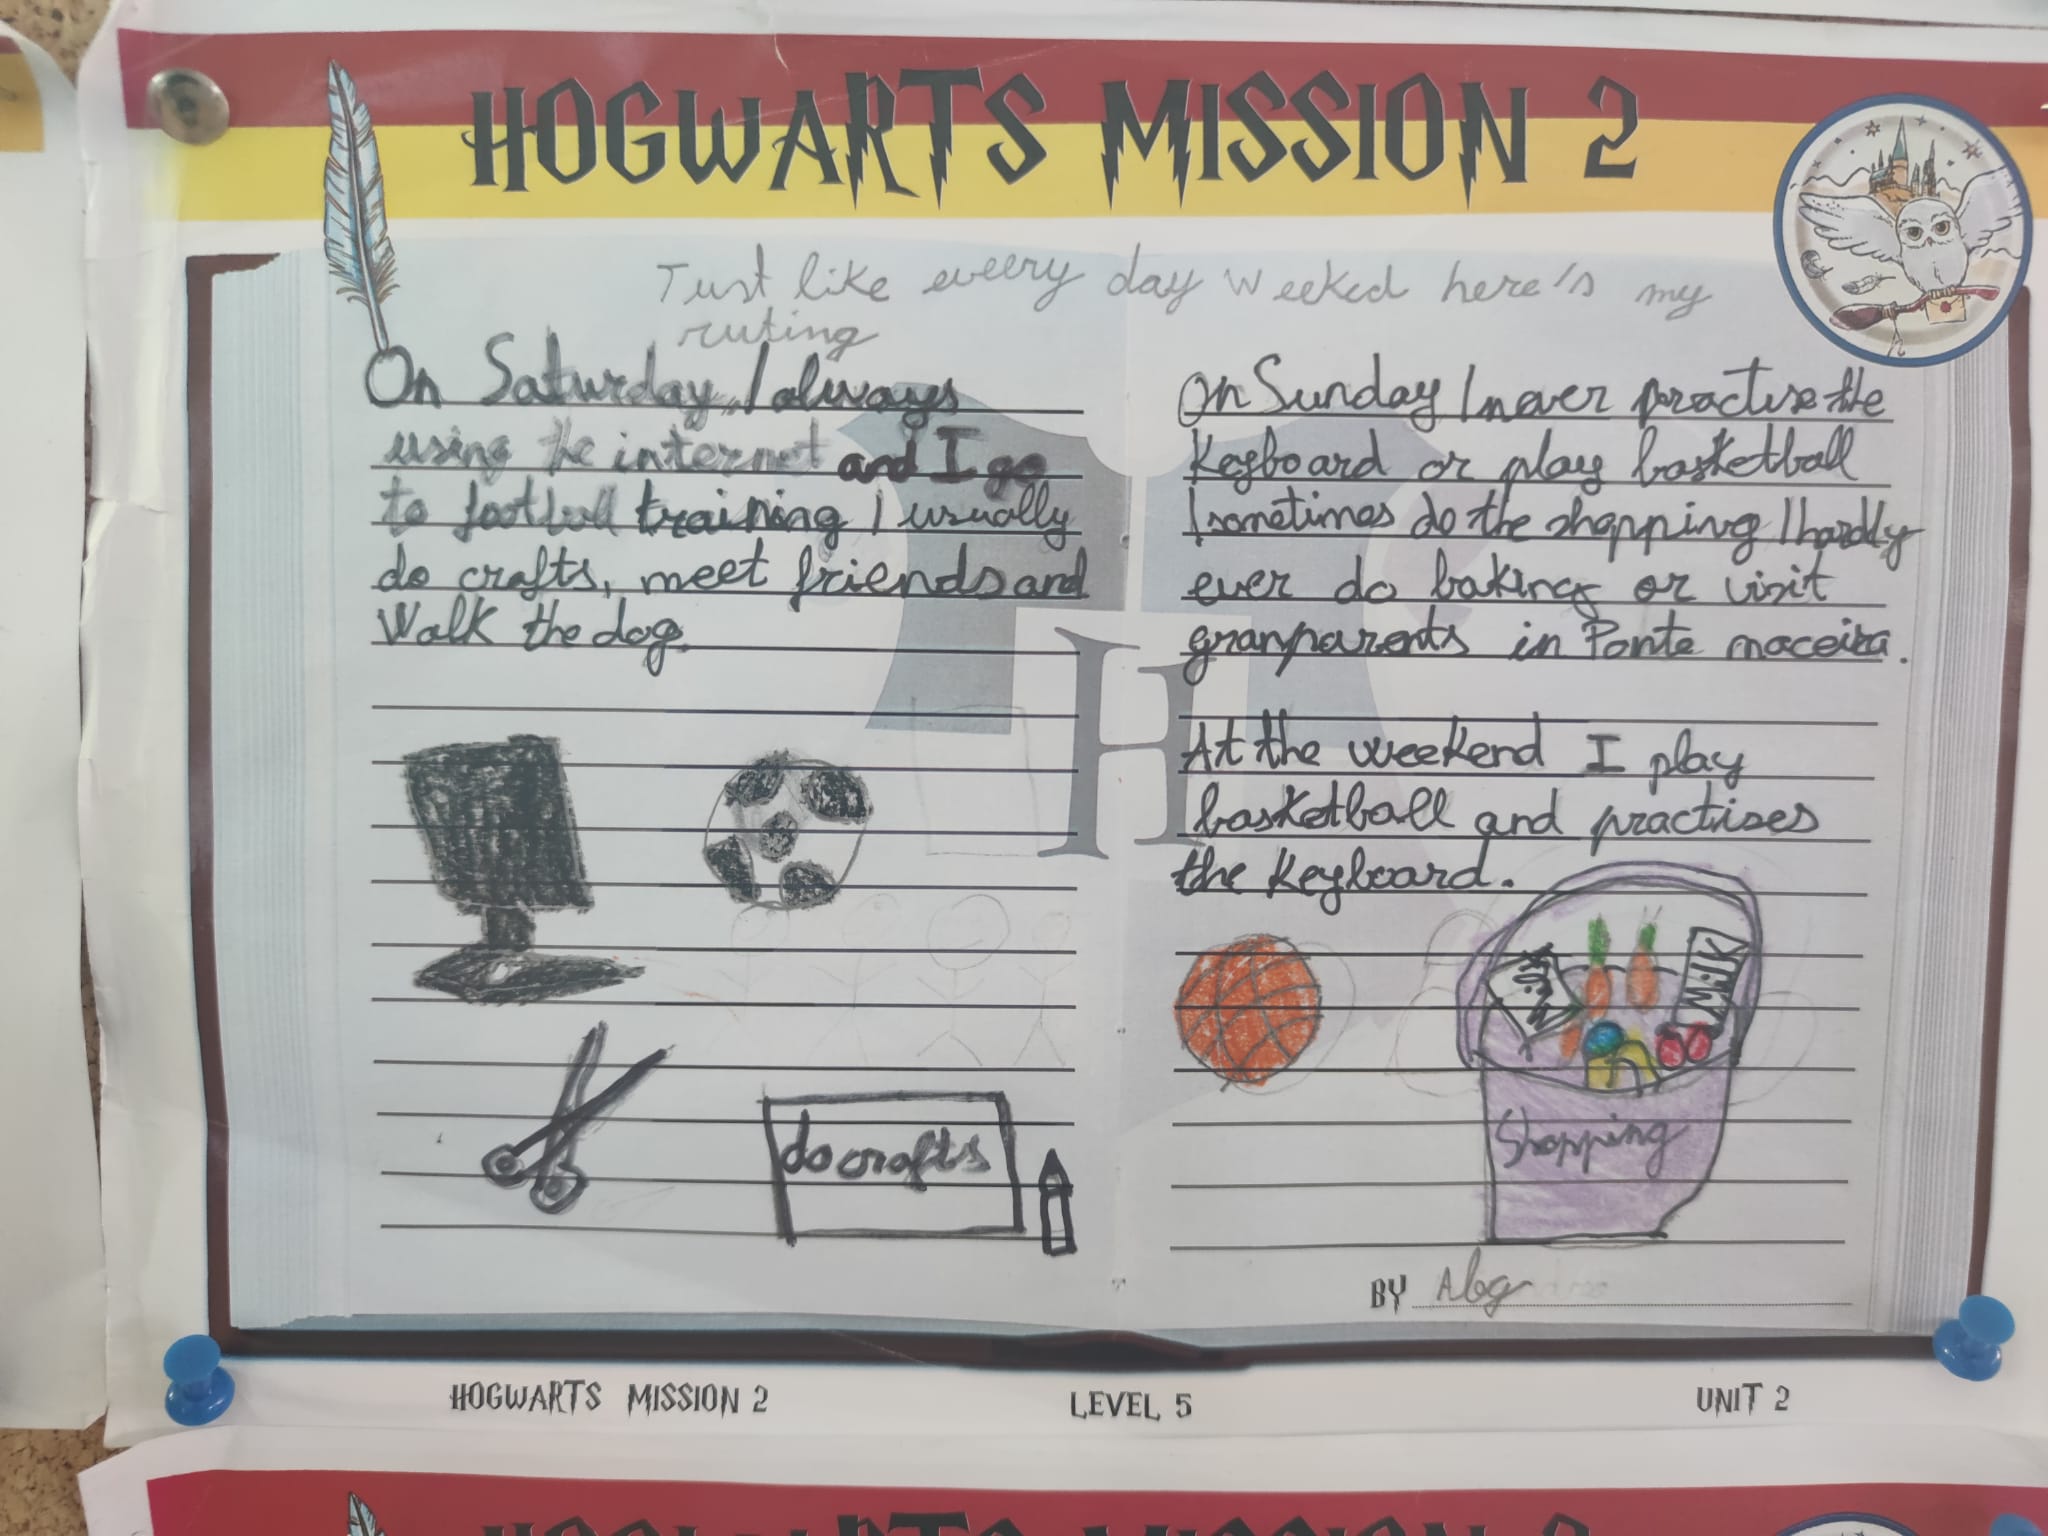 HOGWARTS MISSION 2
Just like eveery day weeked here's my
ruting
On Saturday, I always
using the internet and I go
to football training I usually
do crafts, meet friends and
Walk the dog.
do crafts
On Sunday I never practise the
Keyboard or play basketball
I sometimes do the shopping I hardly
ever do baking or visit
granparents in Ponte maceira.
At the weekend I play
basketball and practises
the Keyboard.
Milk
Shopping
BY
HOGWARTS MISSION 2 LEVEL 5 UNIT 2
HOGWARTS MISSION 2